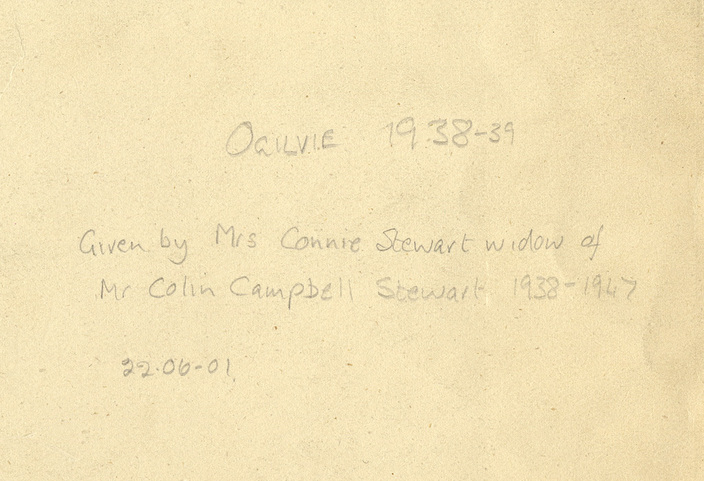 OGILVIE 1938-39
Given by Mrs Connie Stewart widow of
Mr Colin Campbell Stewart 1938-1947
22.06-01